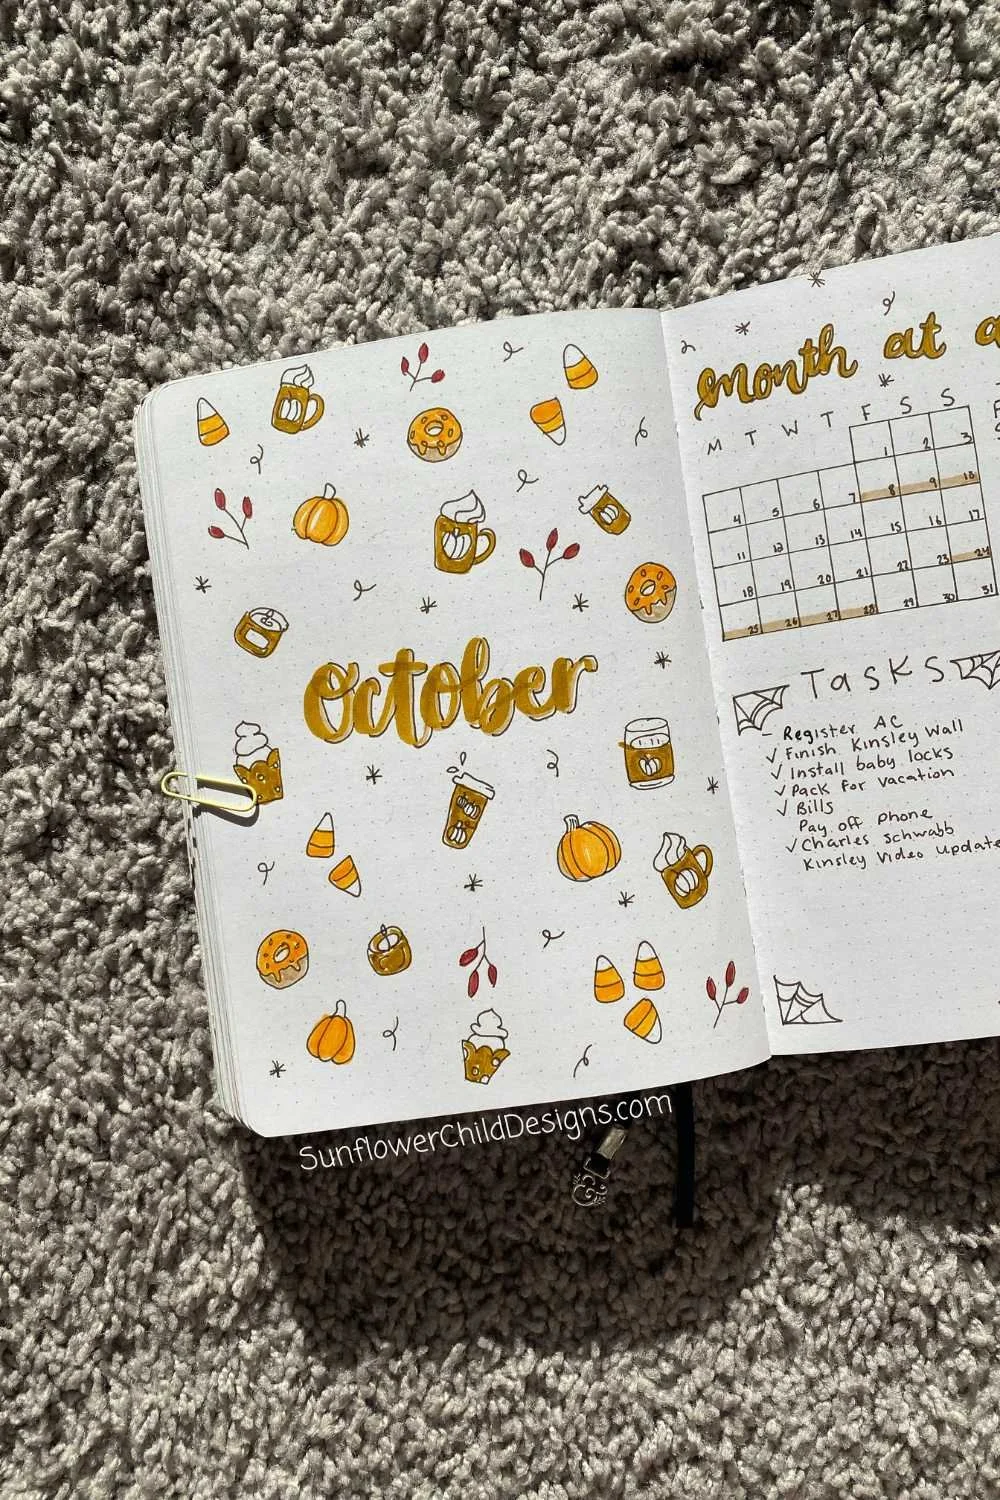 October
month at a
M T W T F S S
1 2 3
4 5 6 7 8 9 10
11 12 13 14 15 16 17
18 19 20 21 22 23 24
25 26 27 28 29 30 31
Tasks
- Register AC
✓ Finish Kinsley Wall
✓ Install baby locks
✓ Pack for vacation
✓ Bills
Pay off phone
✓ Charles Schwabb
Kinsley Video Update
SunflowerChildDesigns.com